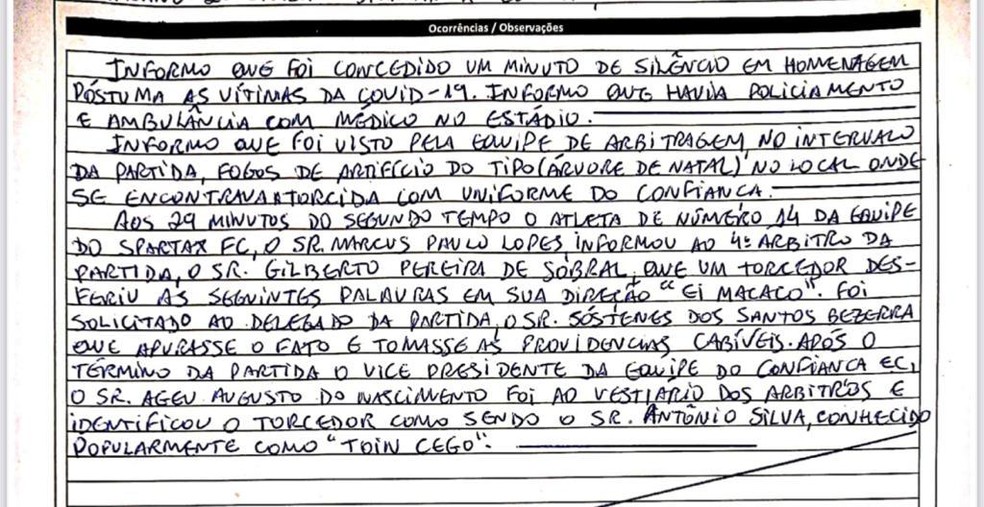 Ocorrências / Observações
INFORMO QUE FOI CONCEDIDO UM MINUTO DE SILÊNCIO EM HOMENAGEM
PÓSTUMA AS VÍTIMAS DA COVID-19. INFORMO QUE HAVIA POLICIAMENTO
E AMBULÂNCIA COM MÉDICO NO ESTÁDIO.
INFORMO QUE FOI VISTO PELA EQUIPE DE ARBITRAGEM, NO INTERVALO
DA PARTIDA, FOGOS DE ARTIFÍCIO DO TIPO (ÁRVORE DE NATAL) NO LOCAL ONDE
SE ENCONTRAVA A TORCIDA COM UNIFORME DO CONFIANÇA.
AOS 29 MINUTOS DO SEGUNDO TEMPO O ATLETA DE NÚMERO 14 DA EQUIPE
DO SPARTAX FC, O SR. MARCUS PAULO LOPES, INFORMOU AO 4º ÁRBITRO DA
PARTIDA, O SR. GILBERTO PEREIRA DE SOBRAL, QUE UM TORCEDOR DES-
FERIU AS SEGUINTES PALAVRAS EM SUA DIREÇÃO "EI MACACO". FOI
SOLICITADO AO DELEGADO DA PARTIDA, O SR. SÓSTENES DOS SANTOS BEZERRA
QUE APURASSE O FATO E TOMASSE AS PROVIDENCIAS CABÍVEIS. APÓS O
TÉRMINO DA PARTIDA O VICE PRESIDENTE DA EQUIPE DO CONFIANÇA EC,
O SR. AGEU AUGUSTO DO NASCIMENTO FOI AO VESTIÁRIO DOS ARBITROS E
IDENTIFICOU O TORCEDOR COMO SENDO O SR. ANTÔNIO SILVA, CONHECIDO
POPULARMENTE COMO "TOIN CEGO".